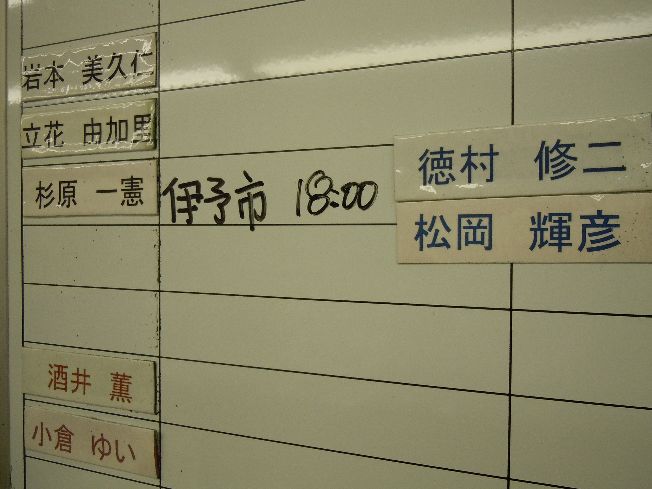 岩本 美久仁
立花 由加里
杉原 一憲 伊予市 18:00
徳村 修二
松岡 輝彦
酒井 薫
小倉 ゆい